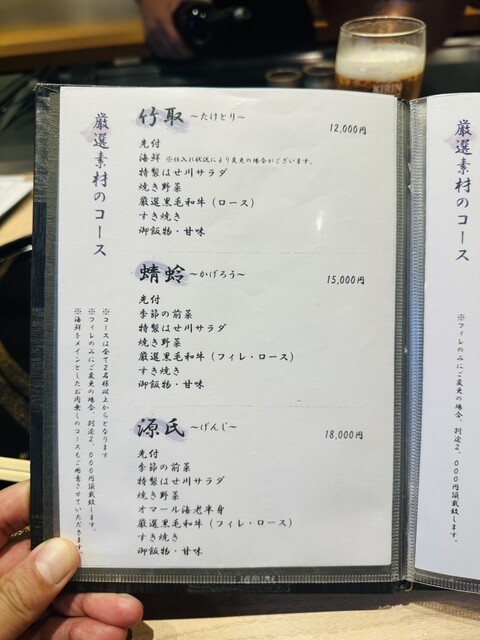 厳選素材のコース
竹取 ~たけとり~ 12,000円
先付
海鮮 ※仕入れ状況により変更の場合がございます。
特製はせ川サラダ
焼き野菜
厳選黒毛和牛(ロース)
すき焼き
御飯物・甘味
蜻蛉 ~かげろう~ 15,000円
先付
季節の前菜
特製はせ川サラダ
焼き野菜
厳選黒毛和牛(フィレ・ロース)
すき焼き
御飯物・甘味
源氏 ~げんじ~ 18,000円
先付
季節の前菜
特製はせ川サラダ
焼き野菜
オマール海老半身
厳選黒毛和牛(フィレ・ロース)
すき焼き
御飯物・甘味
※コースは全て2名様以上からとなります
※フィレのみにご変更の場合、別途2,000円頂戴致します。
※海鮮をメインとしたお肉無しのコースもご用意させていただきます。
厳選素材のコース
※フィレのみにご変更の場合、別途2,000円頂戴致します。
KIRIN